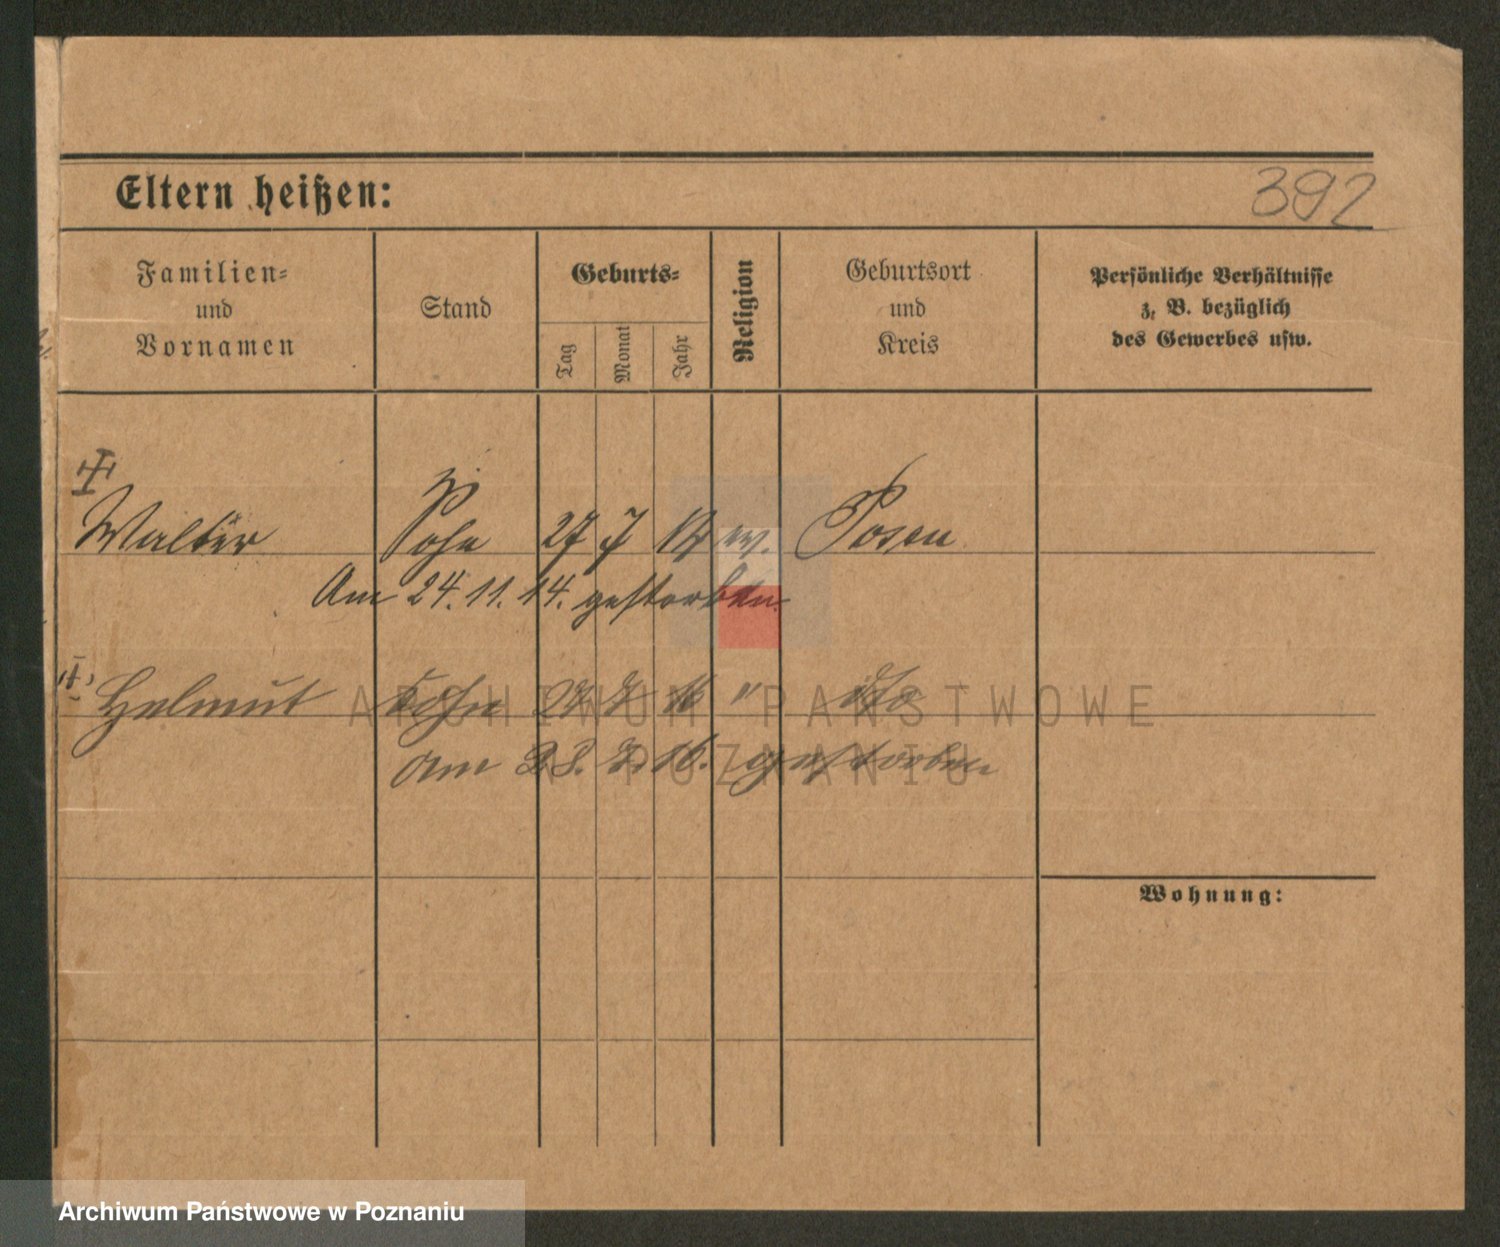 Eltern heißen:
392
Familien-
und
Vornamen
Stand
Geburts-
Tag
Monat
Jahr
Religion
Geburtsort
und
Kreis
Persönliche Verhältnisse
z. B. bezüglich
des Gewerbes usw.
Walter Sohn 27 7 ev. Posen
Am 24. 11. 14. gestorben.
Helmut Sohn 7 16 " dto
Am 28. 7. 16. gestorben
ARCHIWUM PAŃSTWOWE
W POZNANIU
Wohnung:
Archiwum Państwowe w Poznaniu